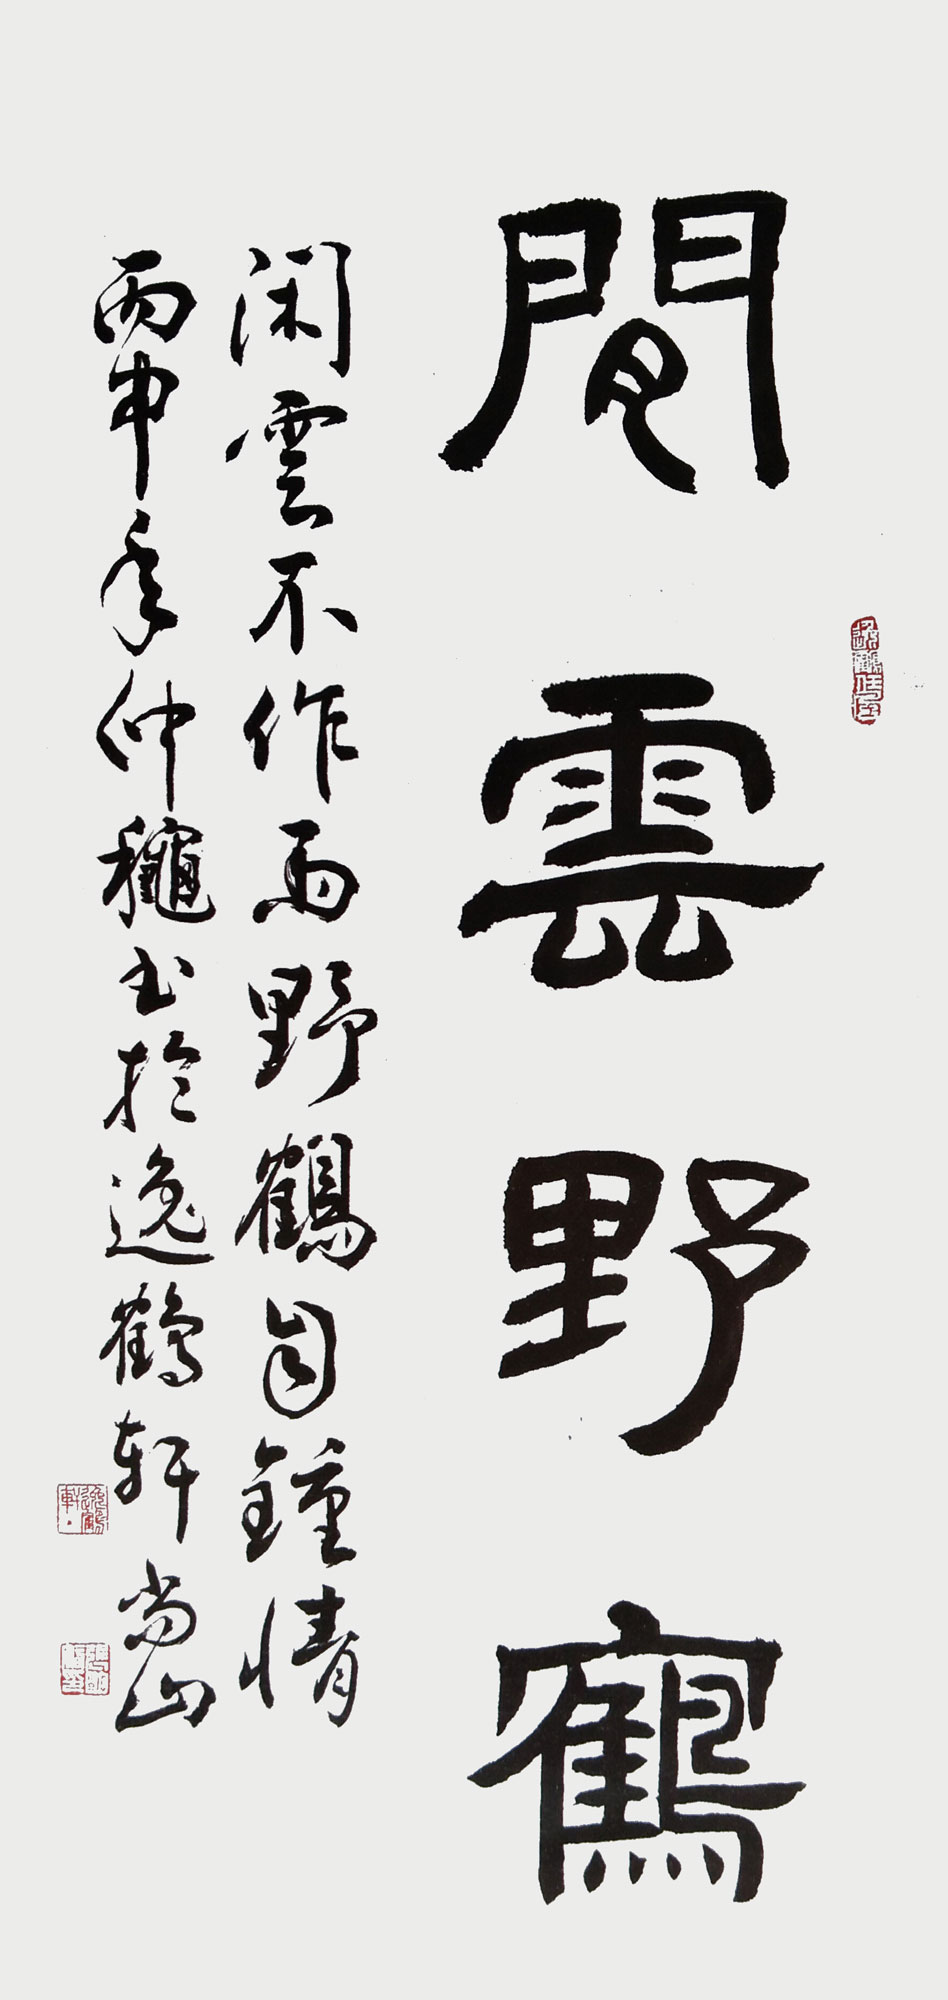 閒雲野鶴
闲雲不作雨野鶴自鍾情
丙申年仲龝书於逸鶴軒尚山
逸鶴軒